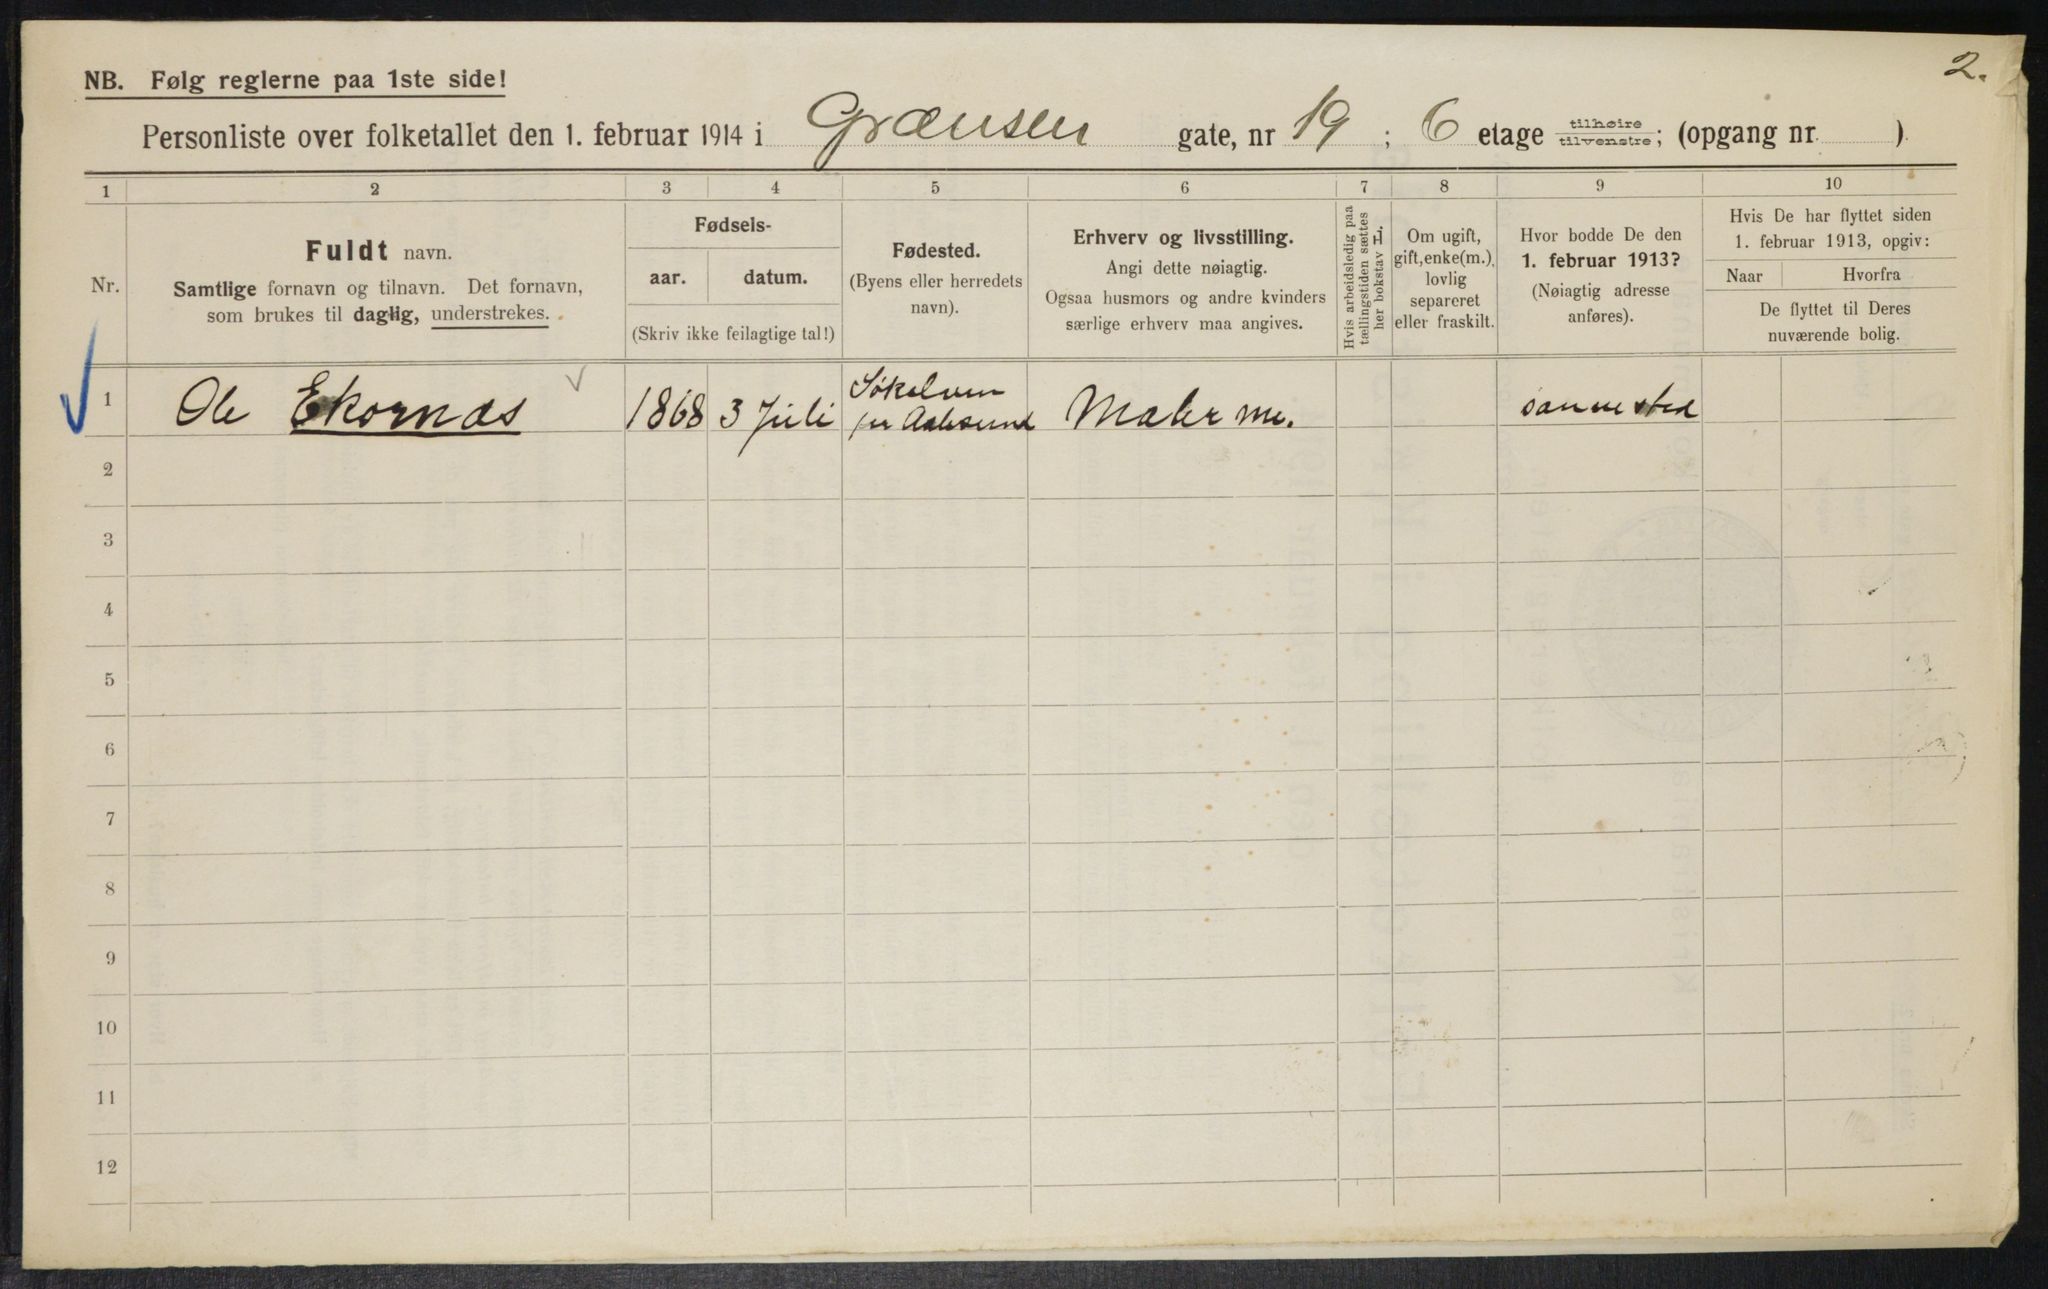 2.
NB. Følg reglerne paa 1ste side!
Personliste over folketallet den 1. februar 1914 i Grænsen gate, nr 19 ; 6 etage tilhøire / tilvenstre; (opgang nr. )
1 2 3 4 5 6 7 8 9 10
Nr.
Fuldt navn.
Samtlige fornavn og tilnavn. Det fornavn,
som brukes til daglig, understrekes.
Fødsels-
aar. datum.
(Skriv ikke feilagtige tal!)
Fødested.
(Byens eller herredets
navn).
Erhverv og livsstilling.
Angi dette nøiagtig.
Ogsaa husmors og andre kvinders
særlige erhverv maa angives.
Hvis arbeidsledig paa
tællingstiden sættes
her bokstav L.
Om ugift,
gift, enke(m.),
lovlig
separeret
eller fraskilt.
Hvor bodde De den
1. februar 1913?
(Nøiagtig adresse
anføres).
Hvis De har flyttet siden
1. februar 1913, opgiv:
Naar Hvorfra
De flyttet til Deres
nuværende bolig.
1 Ole Ekornæs 1868 3 Juli Søkelven pr Aalesund Maler m. sammested
2
3
4
5
6
7
8
9
10
11
12